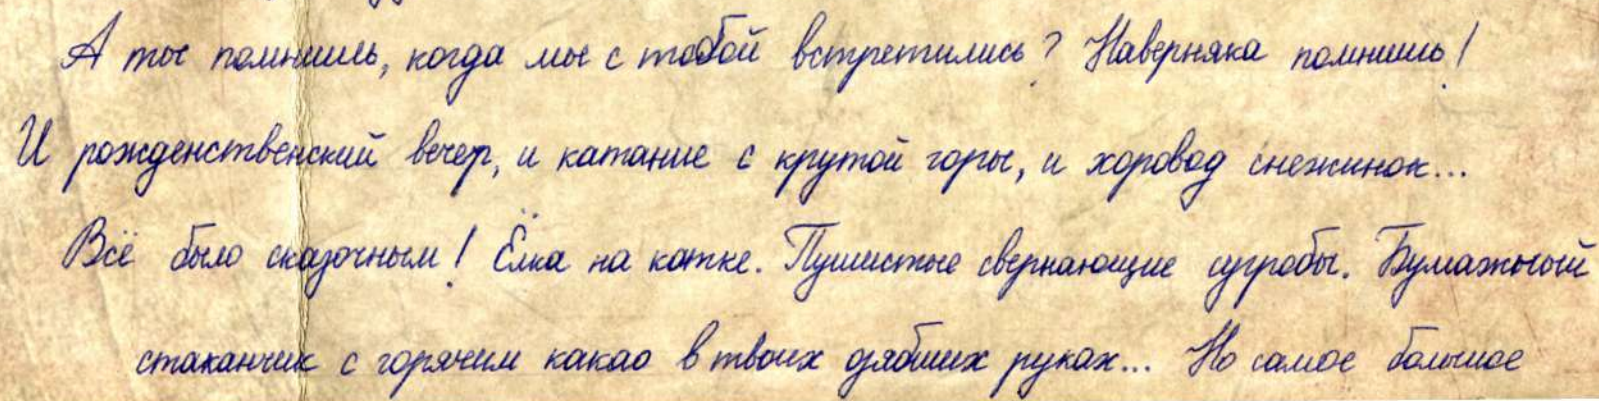 А ты помнишь, когда мы с тобой встретились? Наверняка помнишь!
И рожденственский вечер, и катание с крутой горы, и хоровод снежинок...
Всё было сказочным! Ёлка на катке. Пушистые сверкающие сугробы. Бумажный
стаканчик с горячим какао в твоих озябших руках... Но самое большое